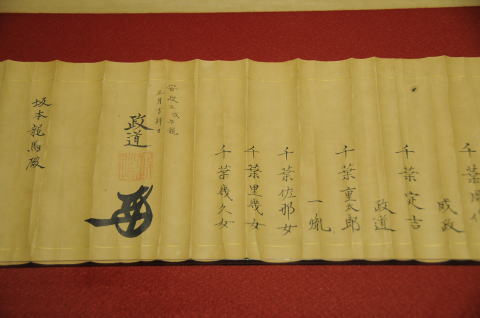 千葉周作
成政
千葉定吉
政道
千葉重太郎
一胤
千葉佐那女
千葉里幾女
千葉幾久女
安政五戊午龍
正月吉祥日
政道
坂本龍馬殿